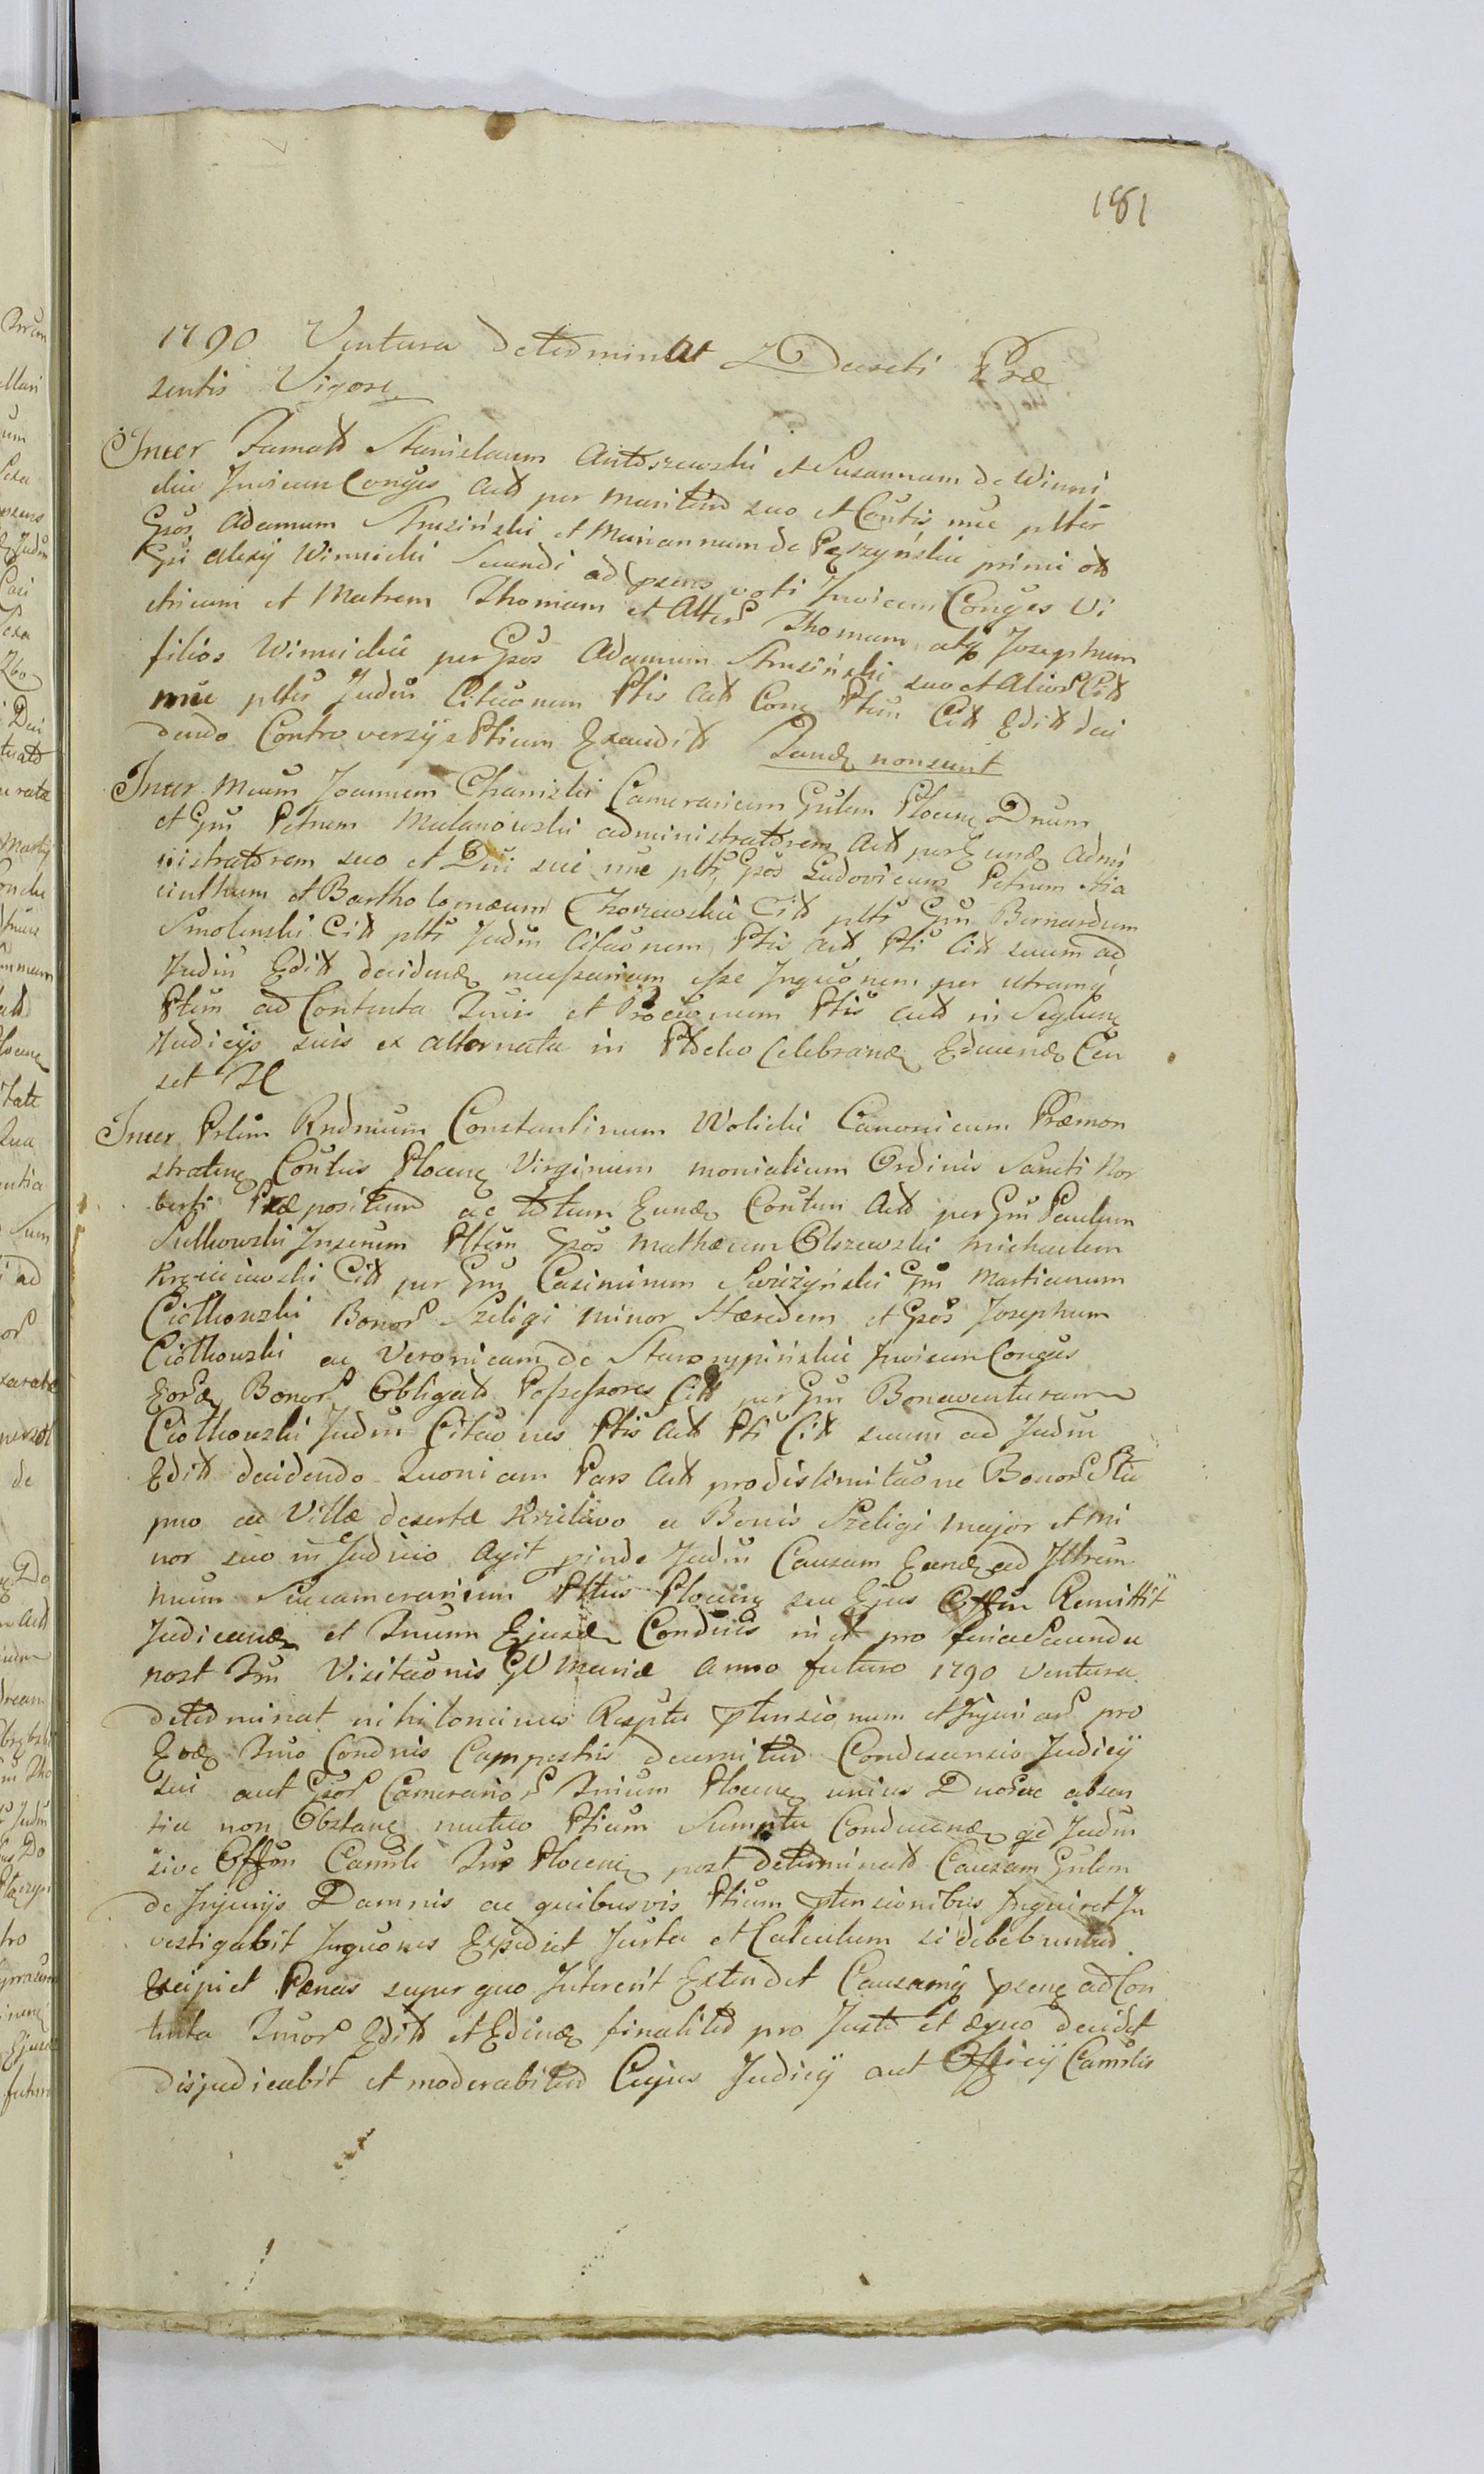 181
1790 Ventura determinat Decreti Præ
sentis Vigore
Inter Famatt Stanislaum et Susannam de Winni
ckie Invicem Conges Act per Maritum suo et Contis nne plter
Gsos Adamum Struziński et Mariannam de primi ott
Gsi Alexÿ Winnicki Secundi ad psens voti Invicem Conges Vi
tricum et Matrem Thomam et Alter Thomam atq Josephum
filios Winnickie per Gsos Adamum Struziński suo et Alior Citt
nne plter Judm Citaonum Ptis Act Conq Ptem Citt Editt deci
dendo Controversÿs Ptium Exauditt Tandq non sunt
Inter Mcum Joannem Chamski Camerarium Gnlem Plocenq Dnum
et Gsm Petrum Malanowski administratorem Act per Eundq Admi
nistratorem suo et Dni sui nne pltr Gsos Ludovicum Petrum Hia
cinthum et Bartholomæum Chorzewskie Citt pltr Gsm Bernardum
Smolenski Citt pltr Judm Citaonem Ptis Act Pti Citt suum ad
Judm Editt decidendq necessarium esse Inquonem per utramq
Ptem ad Contenta Turis et Ptis Act in Seqlunq
Judicÿs suis ex alternata in Celebrandq Educendq Cen
set
Inter Prlem Rndmum Constantinum Wolicki Canonicum Præmon
stratenq Contus Plocenq Virginum monialium Ordinis Sancti Nor
berti Præpositum ac totum Eundq Contum Act per Gsm Paulum
Sulkowski Inter Pltem Gsos Mathæum Olszewski Michaelem
Citt per Gsm Casimirum Gsm Martianum
Ciółkowski Bonor Szeligi minor Hæredem et Gsos Josephum
Ciółkowski ac Veronicam de Starorypińskie Invicem Conges
Eordq Bonor Obligatt Possessores Citt per Gsm Bonaventuram
Ciółkowski Judm Citaones Ptis Act Pti Citt suum ad Judm
Editt decidendo Quoniam Pars Act pro dislimitaone Bonor Słu
pno ac Villæ desertæ a Bonis Szeligi major et mi
nor suo in Judicio Agit pinde Judm Causam Eandq ad Illrem
Mcum Succamerarium Pltus Plocenq seu Ejus Offm Remittit
Judicandq et Tnum Ejusdq Condnis in et pro feria Secunda
post Fm Visitaonis GV Mariæ Anno futuro 1790 ventura
determinat nihilominus Resptu ptensionum et Injuriar pro
Eodq Tno Condnis Campestris decernitur Condescensio Judicÿ
sui aut Gsor Camerarior Plocenq unius Duorve absen
tia non Obstanq mutuo Ptium Sumptu Conducendq qd Judm
sive Offm Camrle Plocenq post determinatt Causam Gnlem
de Injurÿs Damnis ac quibusvis Ptium ptensionibus Inquiret In
vestigabit Inquones Expediet Jurta et Calculum si debebuntur
Excipiet Pœnas super quo Intererit Extendet Causamq psenq ad Con
tenta Turor Editt et Edendq finaliter pro Justo et æquo decidet
disjudicabit et moderabitur Cujus Judicÿ aut Officÿ Camrlis